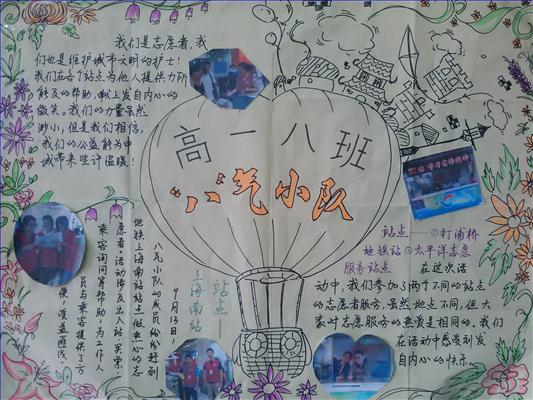 我们是志愿者，我
们也是维护城市文明的护士！
我们在各个站点为他人提供力所
能及的帮助，献上发自内心的
微笑。我们的力量虽然
渺小，但是我们相信，
我们的公益能为申
城带来些许温暖！
高一八班
"八"气小队
学习雷锋精神
八气小队的成员纷纷赶到
地铁上海南站站点做爱心志
愿者。活动涉及出入站、买票、
乘客询问等帮助，为工作人
员与乘客提供了方
便，受益匪浅。
站点
上海南站
9月13日
站点——①打浦桥
地铁站②太平洋志愿
服务站点
在这次活
动中，我们参加了两个不同的站点
的志愿者服务。虽然地点不同，但大
家对志愿服务的热爱是相同的。我们
在活动中感受到发
自内心的快乐。